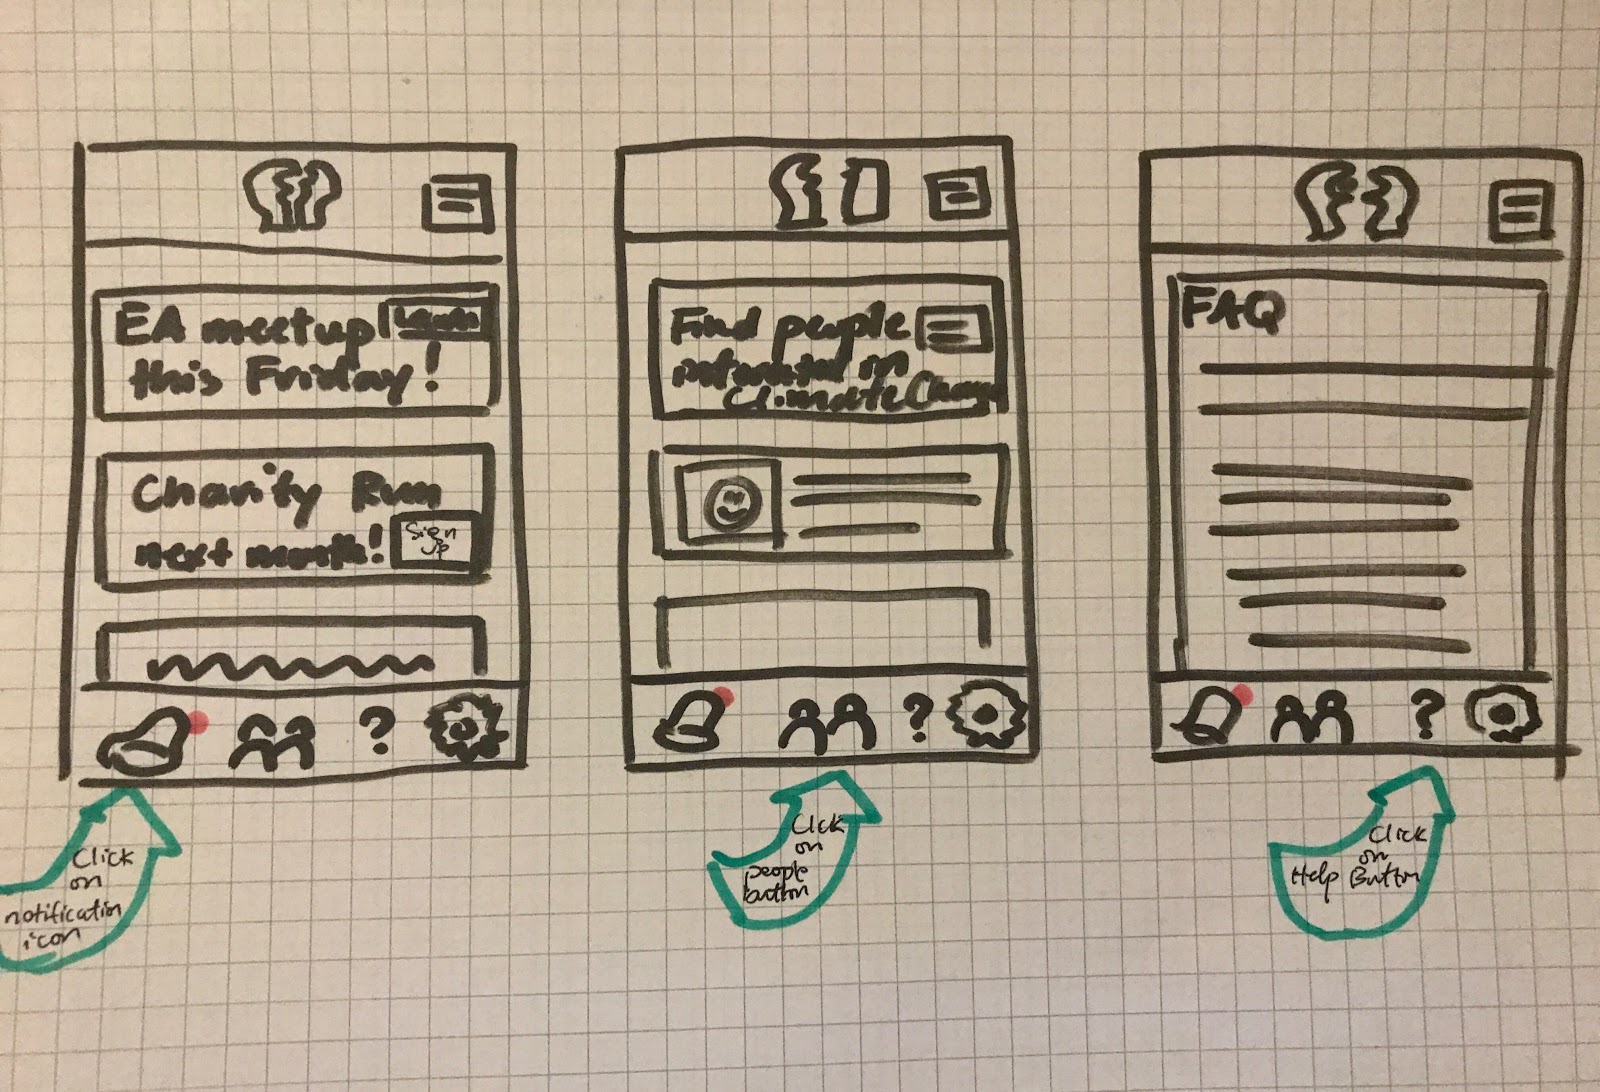 EA meetup
Learn
this Friday!
Charity Run
next month!
Sign
Up
?
Click
on
notification
icon
Find people
interested in
Climate Change
?
Click
on
people
button
FAQ
?
Click
on
Help Button